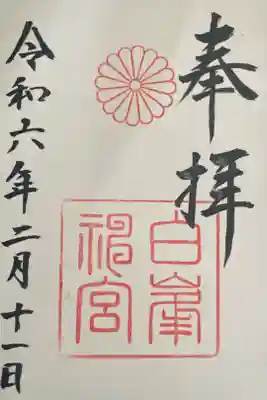 奉拝
白峯神宮
令和六年二月十一日